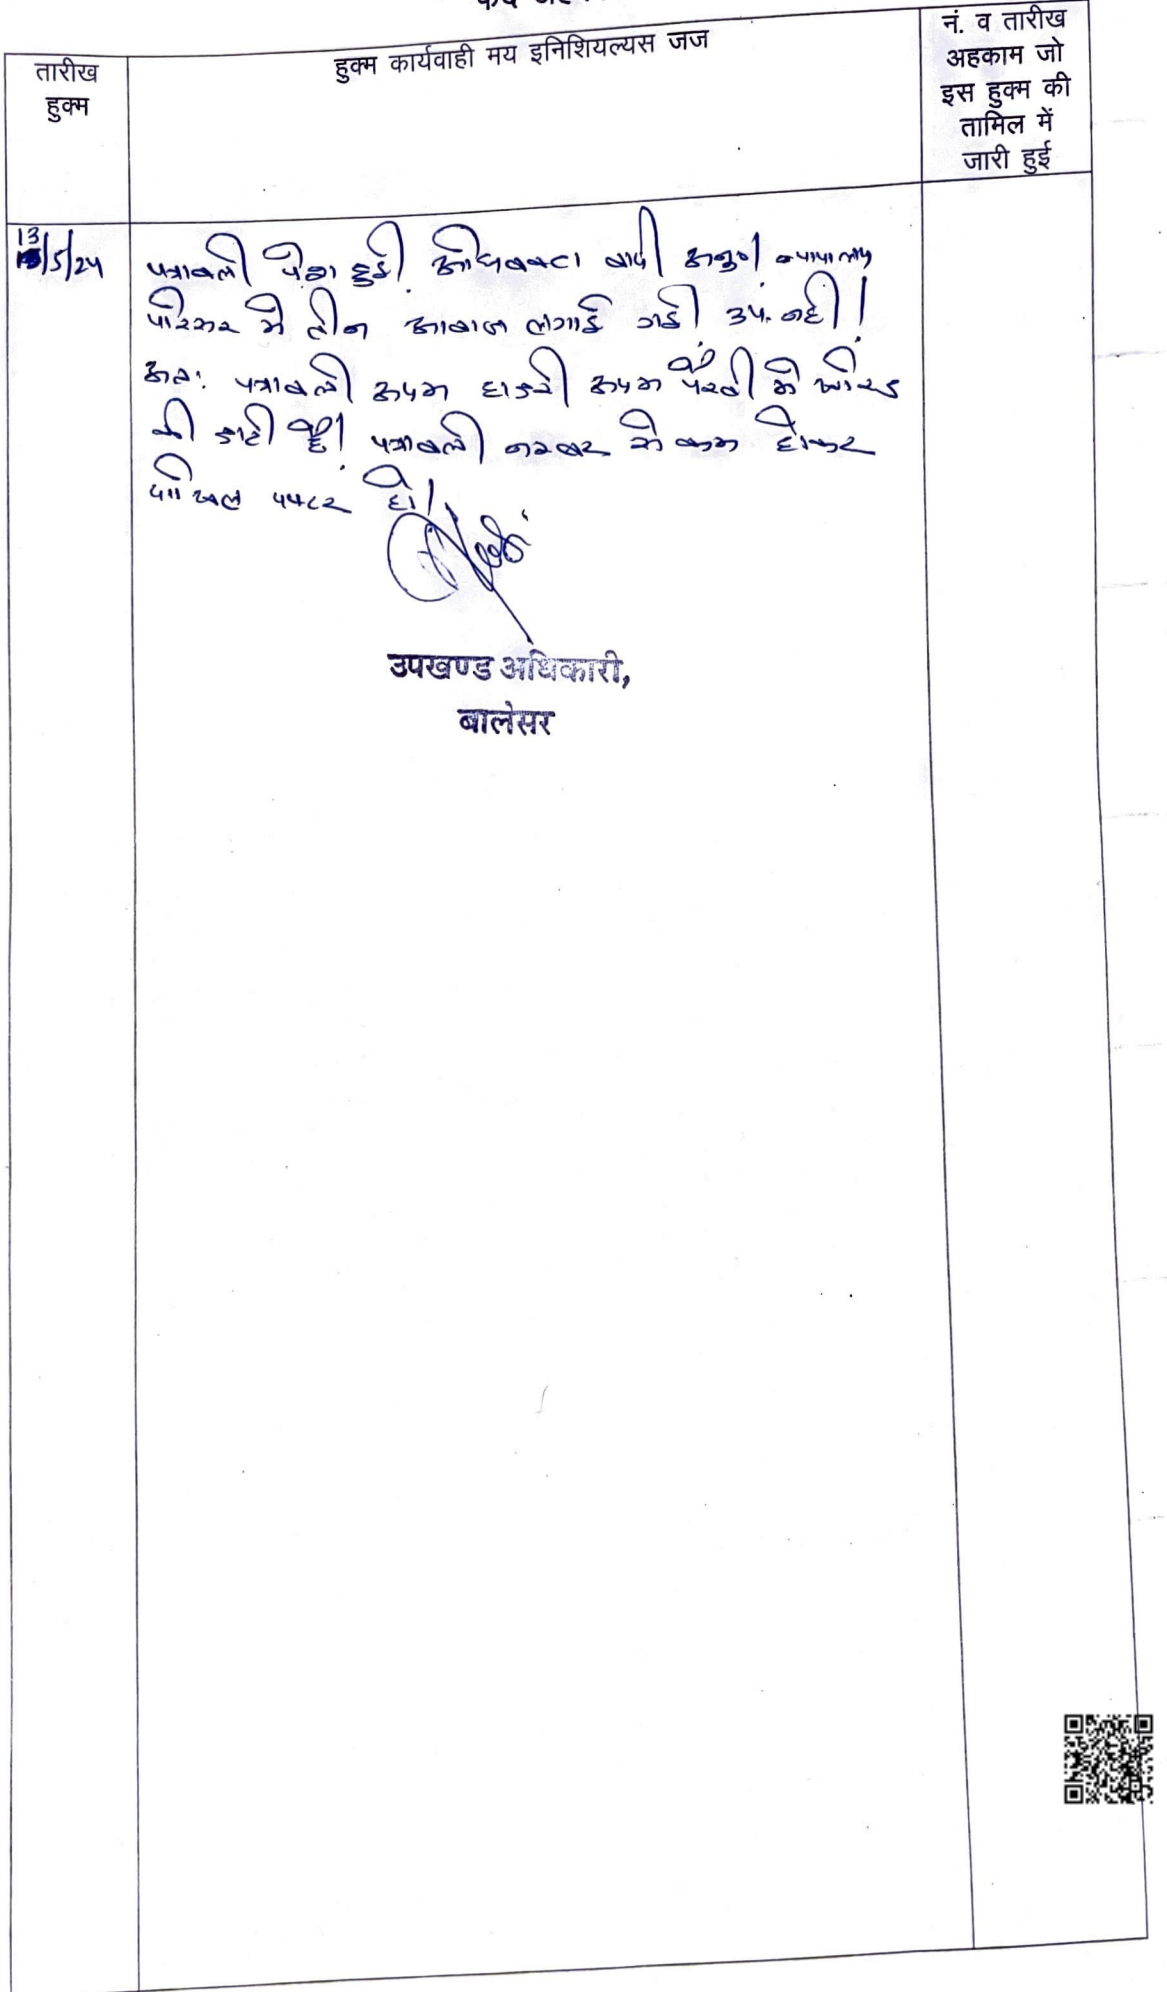 तारीख
हुक्म
हुक्म कार्यवाही मय इनिशियल्यस जज
नं. व तारीख
अहकाम जो
इस हुक्म की
तामिल में
जारी हुई
13/5/24
पत्रावली पेश हुई। अधिवक्ता वादी अनु0। न्यायालय
परिसर मे तीन आवाज लगाई गई उप. नहीं।
अतः पत्रावली अदम हाजरी अदम पैरवी मे खारिज
की जाती है। पत्रावली नम्बर से कम होकर
दाखिल दफ्तर हो।
उपखण्ड अधिकारी,
बालेसर